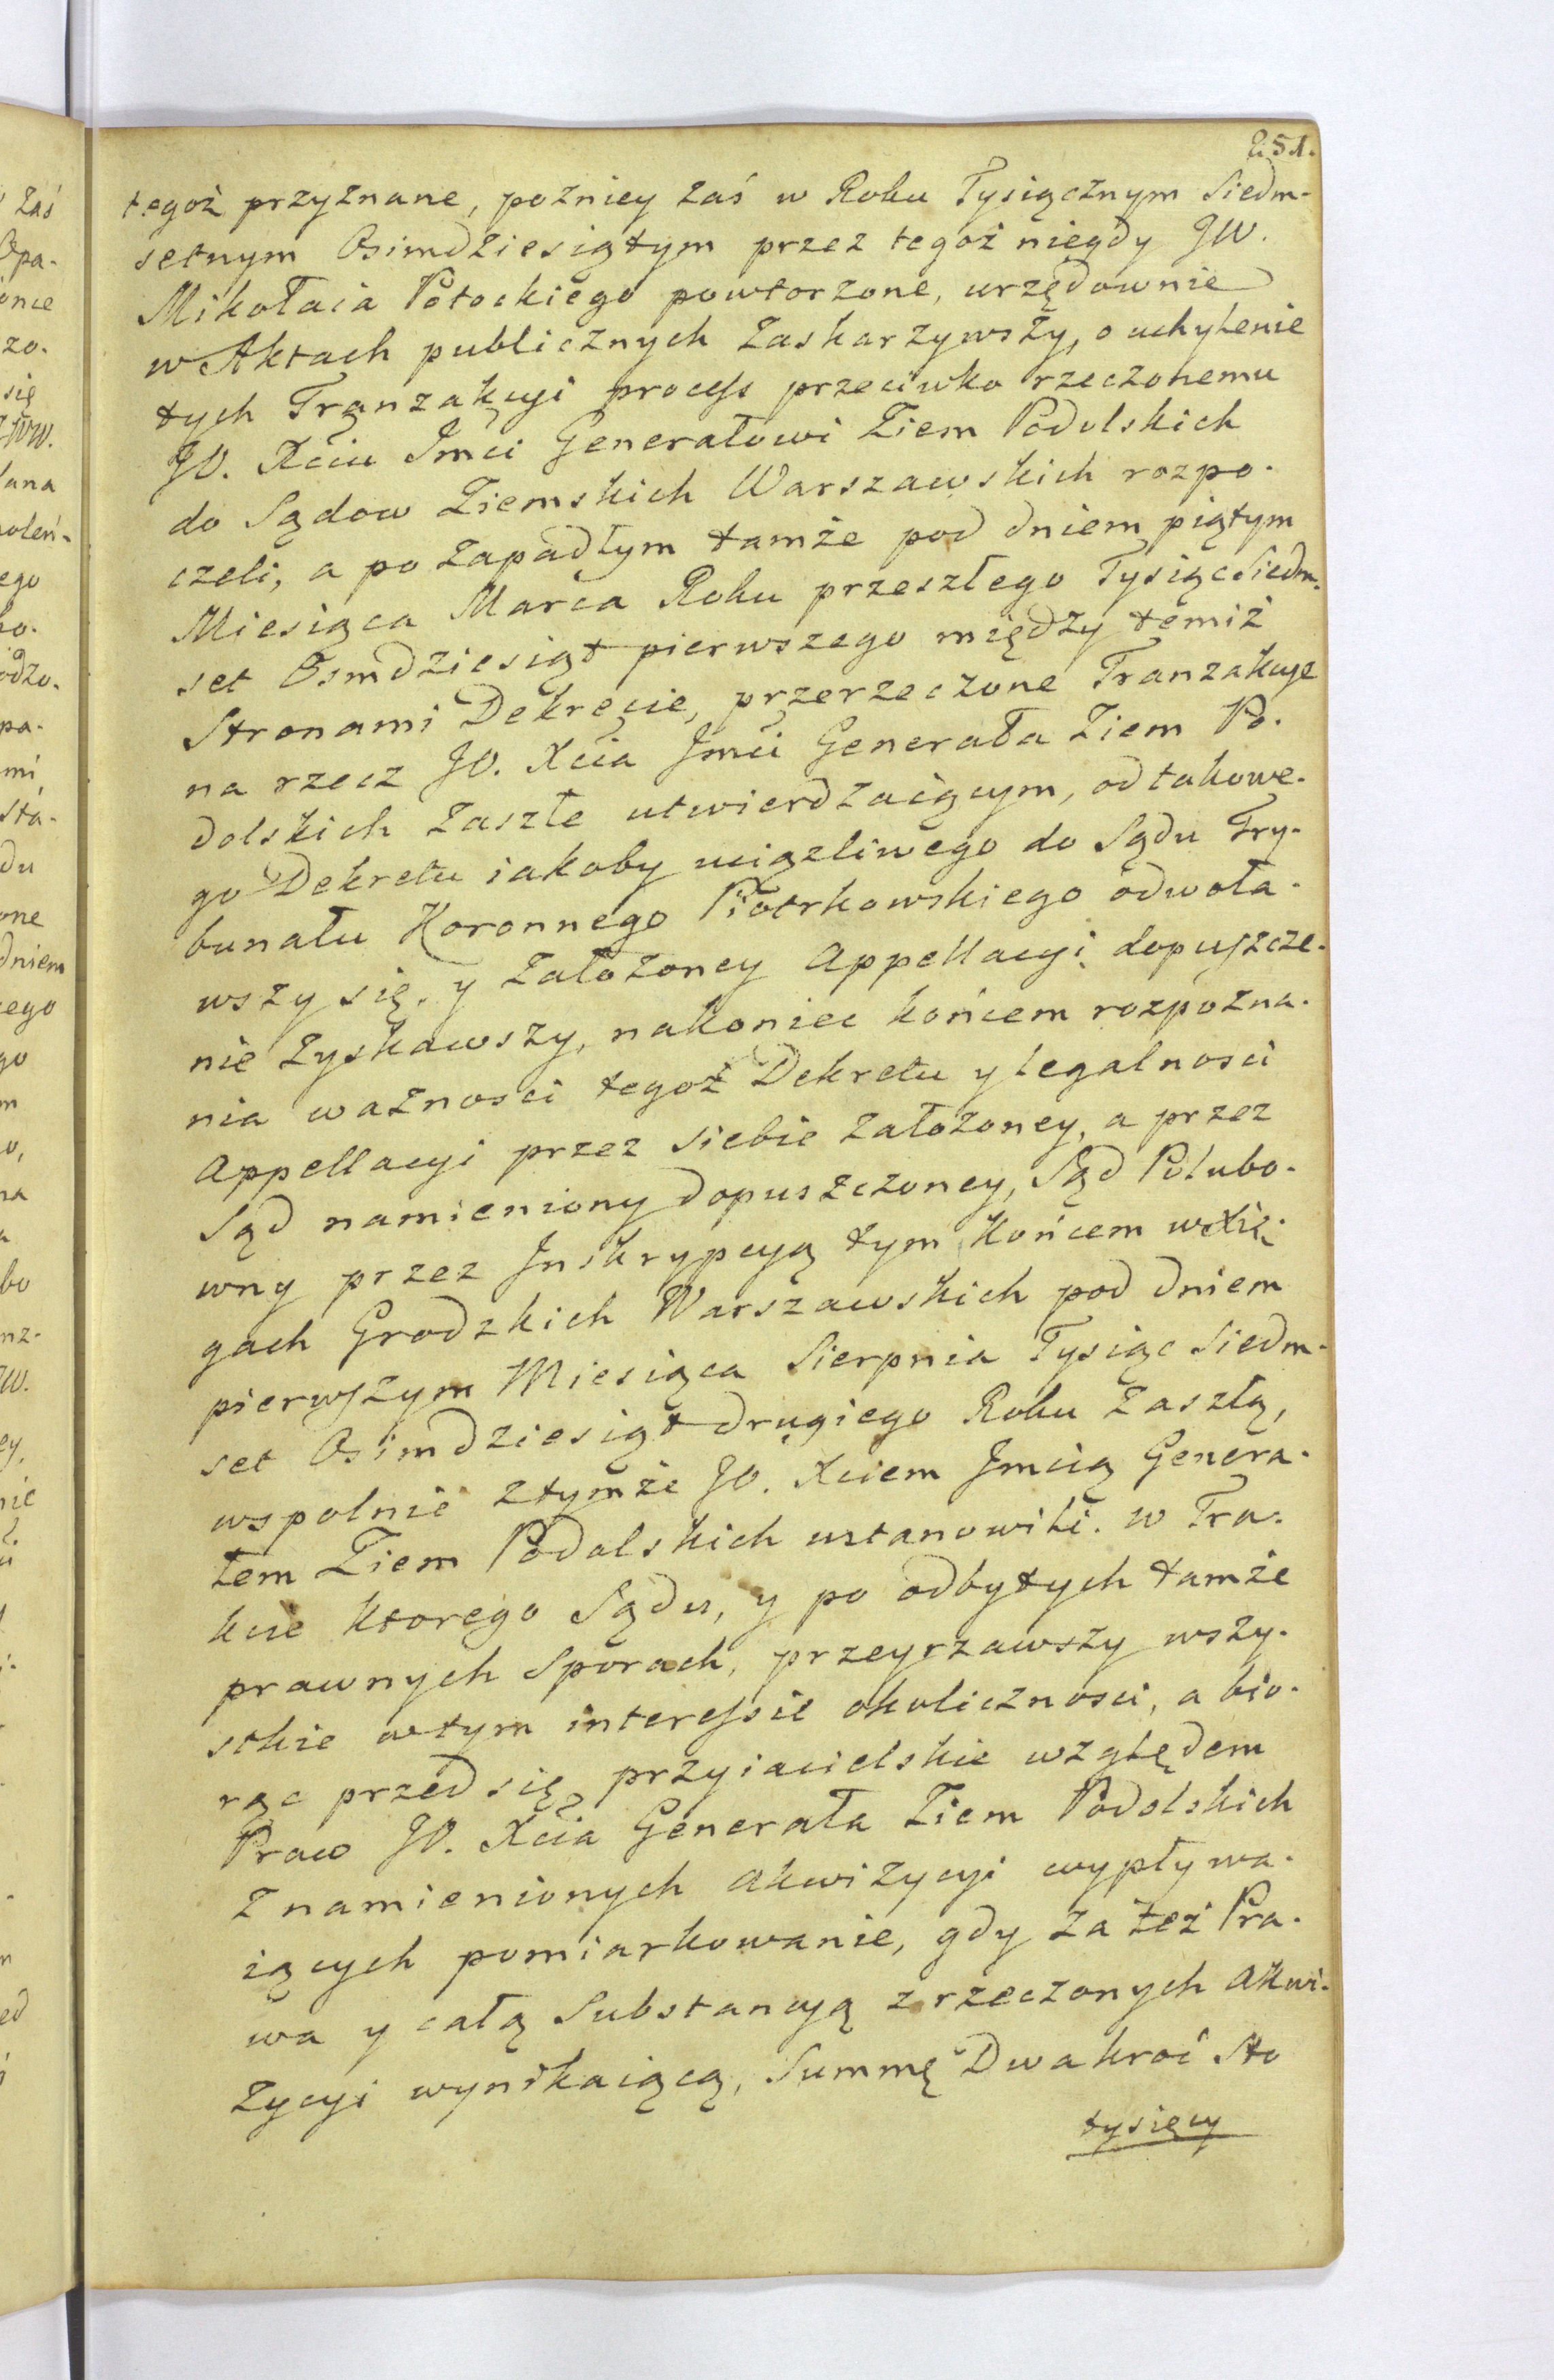 251.
tegoż przyznane, pozniey zaś w Roku Tysiącznym Siedm-
setnym Osimdziesiątym przez tegoż niegdy JW.
Mikołaia Potockiego powtorzone, urzędownie
w Aktach publicznych zaskarzywszy, o uchylenie
tych Tranzakcyi process przeciwko rzeczonemu
JO. Xciu Jmci Generałowi Ziem Podolskich
do Sądow Ziemskich Warszawskich rozpo-
czeli, a po zapadłym tamże pod dniem piątym
Miesiąca Marca Roku przeszłego Tysiąc Siedm-
set Osmdziesiąt pierwszego między temiż
Stronami Dekrecie, przerzeczone Tranzakcye
na rzecz JO. Xcia Jmci Generała Ziem Po-
dolskich zaszłe utwierdzaiącym, od takowe-
go Dekretu iakoby uciązliwego do Sądu Try-
bunału Koronnego Piotrkowskiego odwoła-
wszy się, y założoney Appellacyi dopuszcze-
nie zyskawszy, nakoniec końcem rozpozna-
nia ważnosci tegoż Dekretu y legalnosci
Appellacyi przez siebie założoney, a przez
Sąd namieniony dopuszczoney, Sąd Polubo-
wny przez Inskrypcyą tym końcem w Xię-
gach Grodzkich Warszawskich pod dniem
pierwszym Miesiąca Sierpnia Tysiąc Siedm-
set Osimdziesiąt drugiego Roku zaszłą,
wspolnie z tymże JO. Xciem Jmcią Genera-
łem Ziem Podolskich ustanowili. w Tra-
kcie ktorego Sądu, y po odbytych tamże
prawnych Sporach, przeyrzawszy wszy-
stkie w tym interessie okolicznosci, a bio-
rąc przed się przyiacielskie względem
Praw JO. Xcia Generała Ziem Podolskich
z namienionych Akwizycyi wypływa-
iących pomiarkowanie, gdy za też Pra-
wa y całą Substancyą z rzeczonych Akwi-
zycyi wynikaiącą, Summę Dwakroć Sto
tysięcy